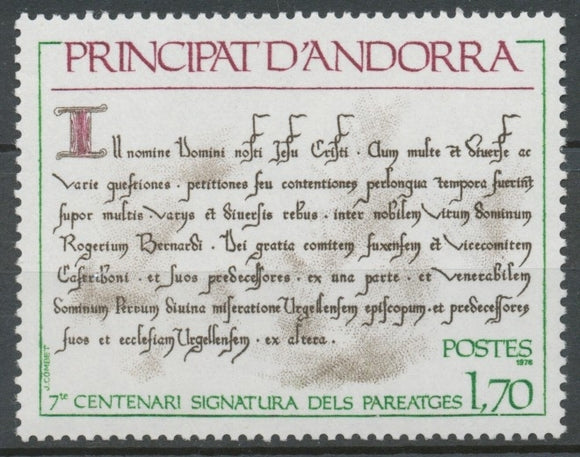 PRINCIPAT D'ANDORRA
In nomine Domini nosti Jesu Cristi . Cum multe et diverse ac
varie questiones . petitiones seu contentiones perlongua tempora fuerint
supor multis . varys et diversis rebus . inter nobilem virum dominum
Rogerium Bernardi . Dei gratia comitem fuxensem et vicecomitem
Castriboni . et suos predecessores . ex una parte . et venerabilem
dominum Petrum divina miseratione Urgellensem episcopum . et predecessores
suos et ecclesiam Urgellensem . ex altera .
POSTES
1978
J. COMBET
7te CENTENARI SIGNATURA DELS PAREATGES 1,70